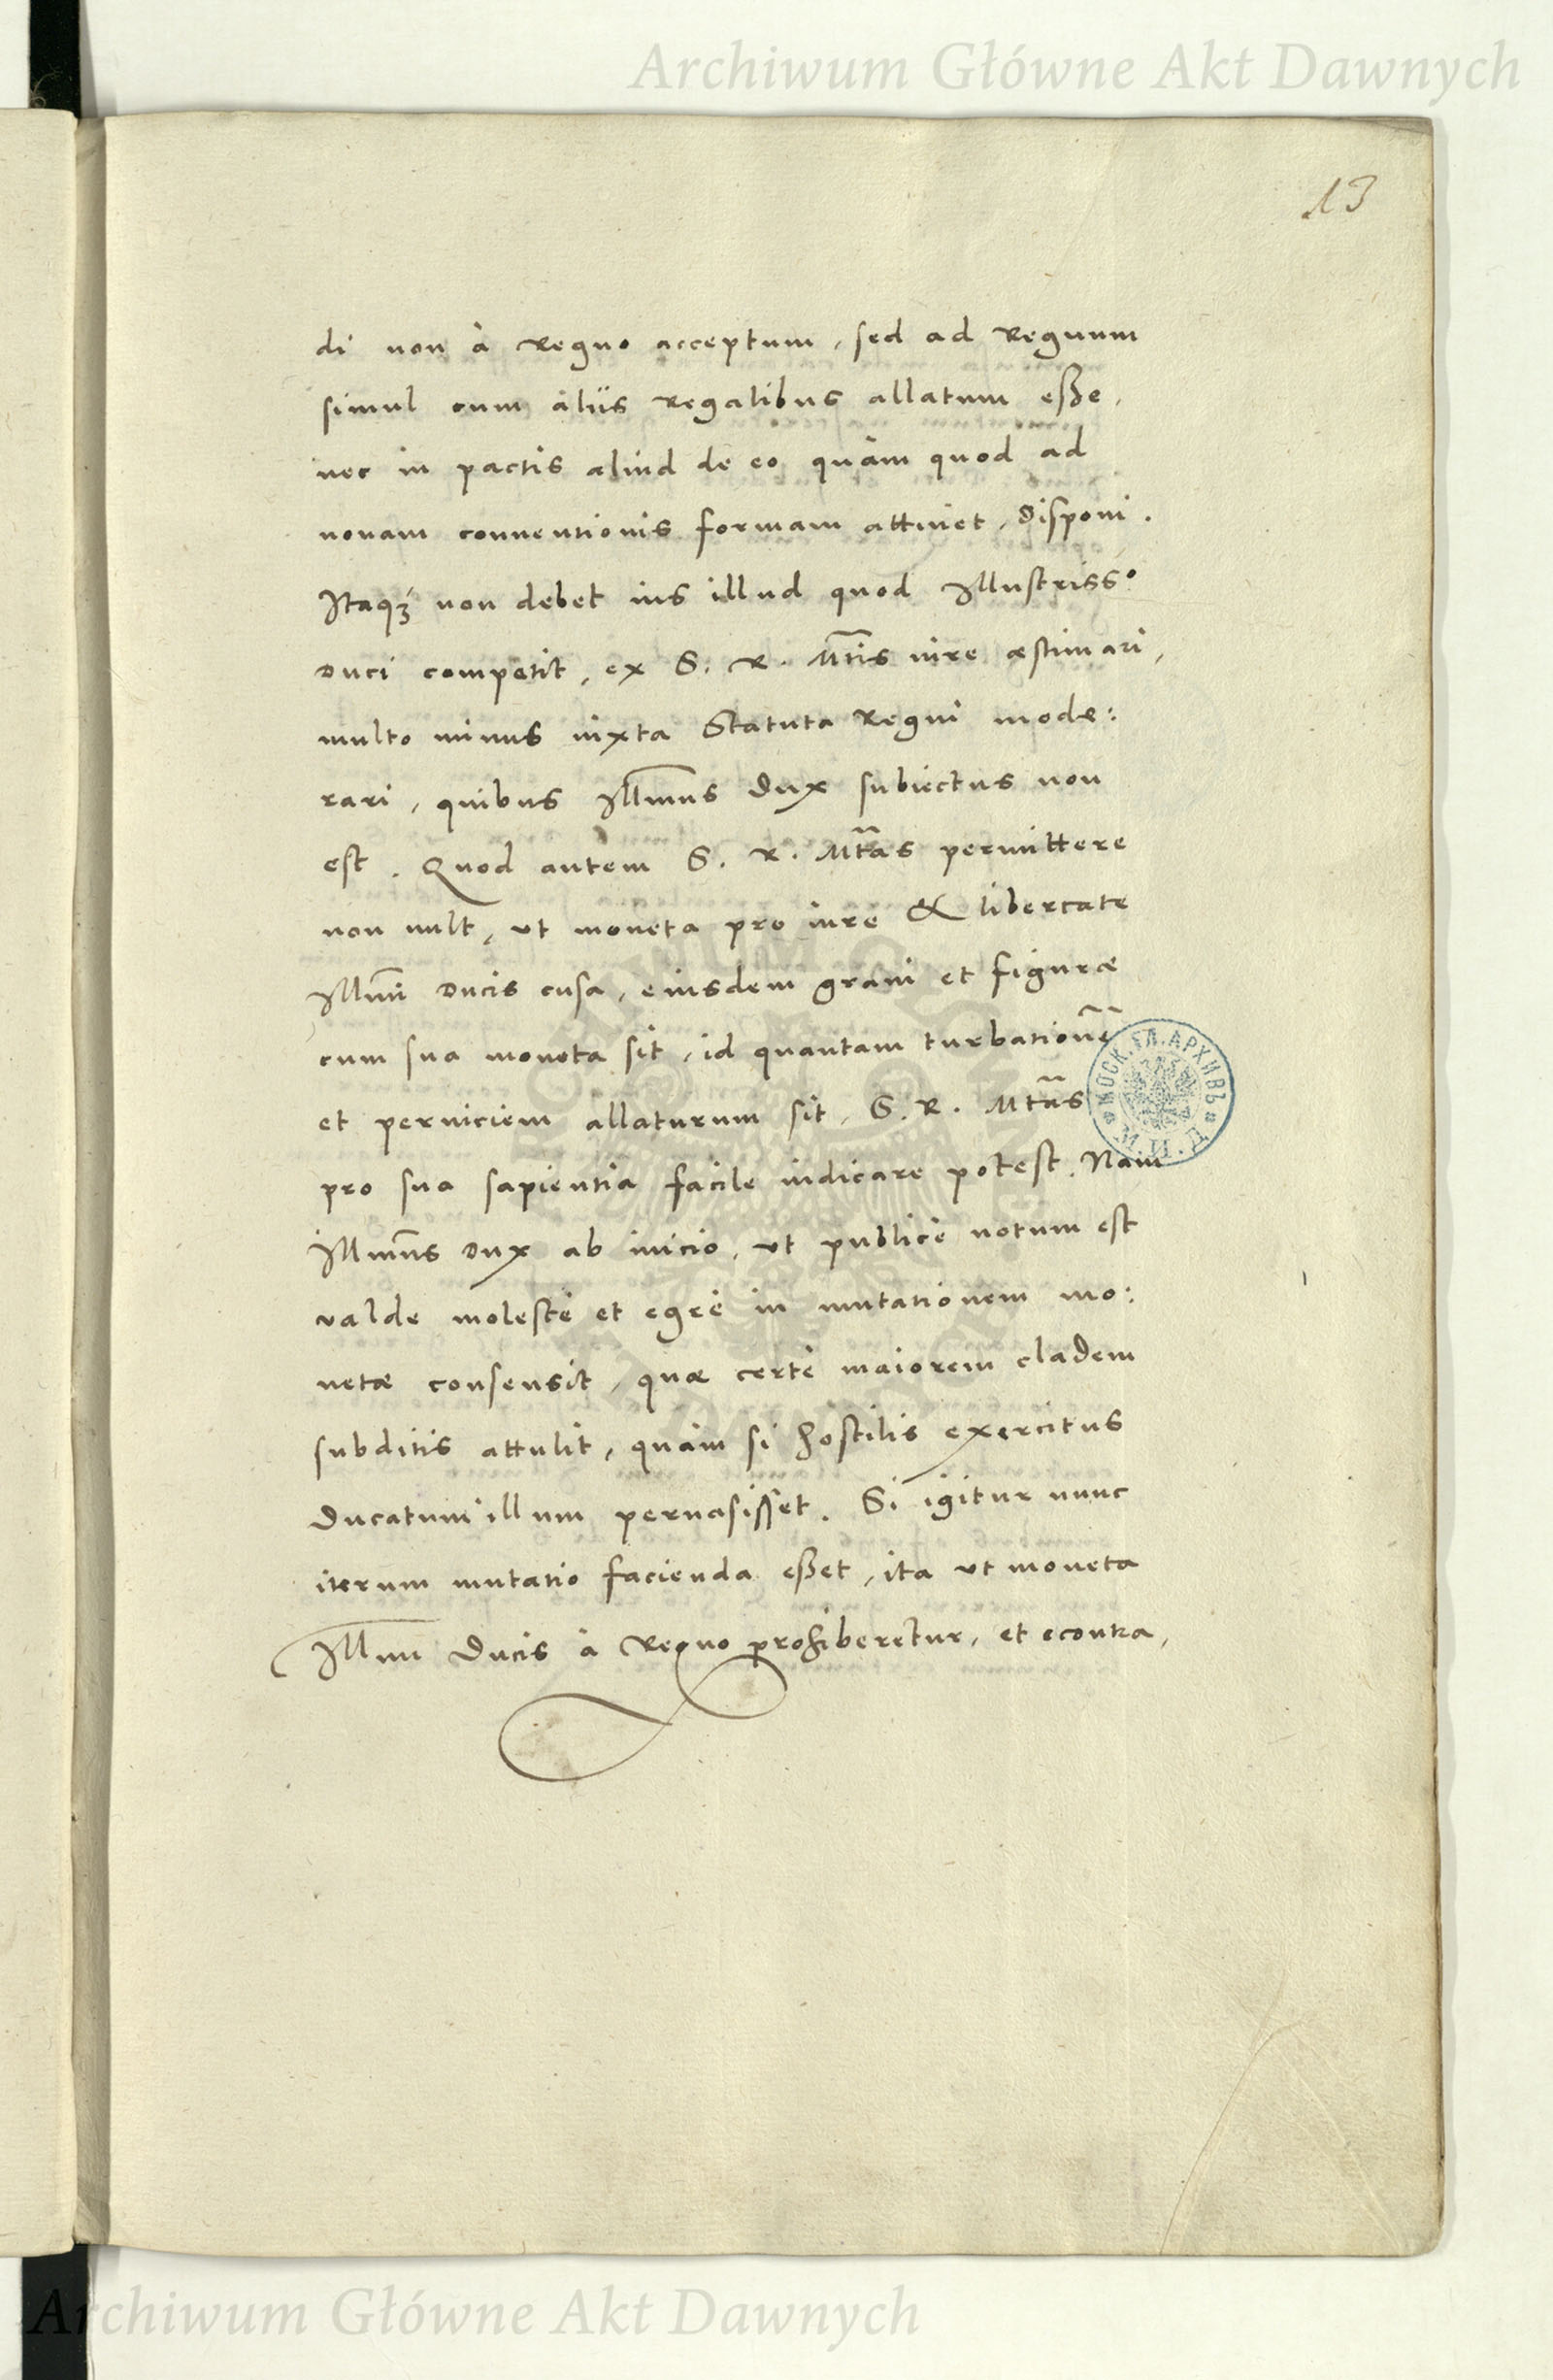 Archiwum Główne Akt Dawnych
13
di non à Regno acceptum, sed ad Regnum
simul cum alijs Regalibus allatum eße,
nec in pactis aliud de eo quàm quod ad
nouam conuentionis formam attinet, disponi.
Itaqʒ non debet ius illud quod Illustriss.º
Duci competit, ex S. R. Mtis iure æstimari,
multo minus iuxta Statuta Regni mode:
rari, quibus Illmus Dux subiectus non
est. Quod autem S. R. Mtas permittere
non uult, vt moneta pro iure & libertate
Illmi Ducis cusa, eiusdem grani et figuræ
cum sua moneta sit, id quantam turbationẽ
et perniciem allaturum sit, S. R. Mtas
pro sua sapientia facile iudicare potest. Nam
Illmus Dux ab inicio, vt publicè notum est
valde molestè et egrè in mutationem mo:
netæ consensit, quæ certè maiorem cladem
subditis attulit, quàm si hostilis exercitus
Ducatum illum peruasisset. Si igitur nunc
iterum mutatio facienda eßet, ita vt moneta
Illmi Ducis à Regno prohiberetur, et econtra,
МОСК. ГЛ. АРХИВЪ
М. И. Д.
Archiwum Główne Akt Dawnych